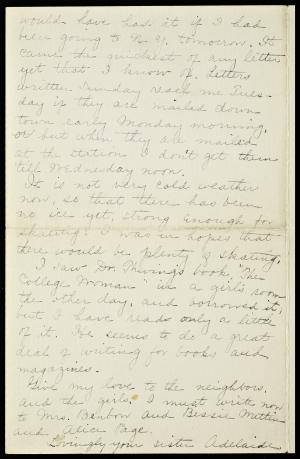 would have had it if I had
been going to N.Y. tomorrow. It
came the quickest of any letter
yet that I know of. Letters
written Sunday reach me Tues-
day if they are mailed down
town early Monday morning,
or but when they are mailed
at the station I don't get them
till Wednesday noon.
It is not very cold weather
now, so that there has been
no ice yet, strong enough for
skating. I was in hopes that
there would be plenty of skating.
I saw Dr. Thwing's book, "The
College Woman" in a girl's room
the other day, and borrowed it,
but I have read only a little
of it. He seems to do a great
deal of writing for books and
magazines.
Give my love to the neighbors,
and the girls. I must write now
to Mrs. Benbow and Bessie
and Alice Page.
Lovingly your sister Adelaide